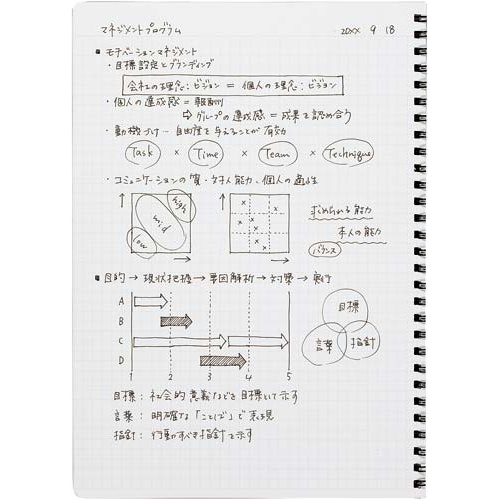 マネジメントプログラム 20XX 9 18
■ モチベーションマネジメント
・目標設定とブランディング
会社の理念：ビジョン ＝ 個人の理念：ビジョン
・個人の達成感 ＝ 報酬
⇨ グループの達成感 ＝ 成果を認め合う
・動機づけ… 自由度を与えることが有効
Task × Time × Team × Technique
・コミュニケーションの質・対人能力、個人の適性
high
mid
low
求められる能力
本人の能力
バランス
■ 目的 → 現状把握 → 要因解析 → 対策 → 実行
A
B
C
D
1 2 3 4 5
目標
言葉 指針
目標： 社会的意義などを目標として示す
言葉： 明確な「ことば」で表現
指針： 行動すべき指針を示す